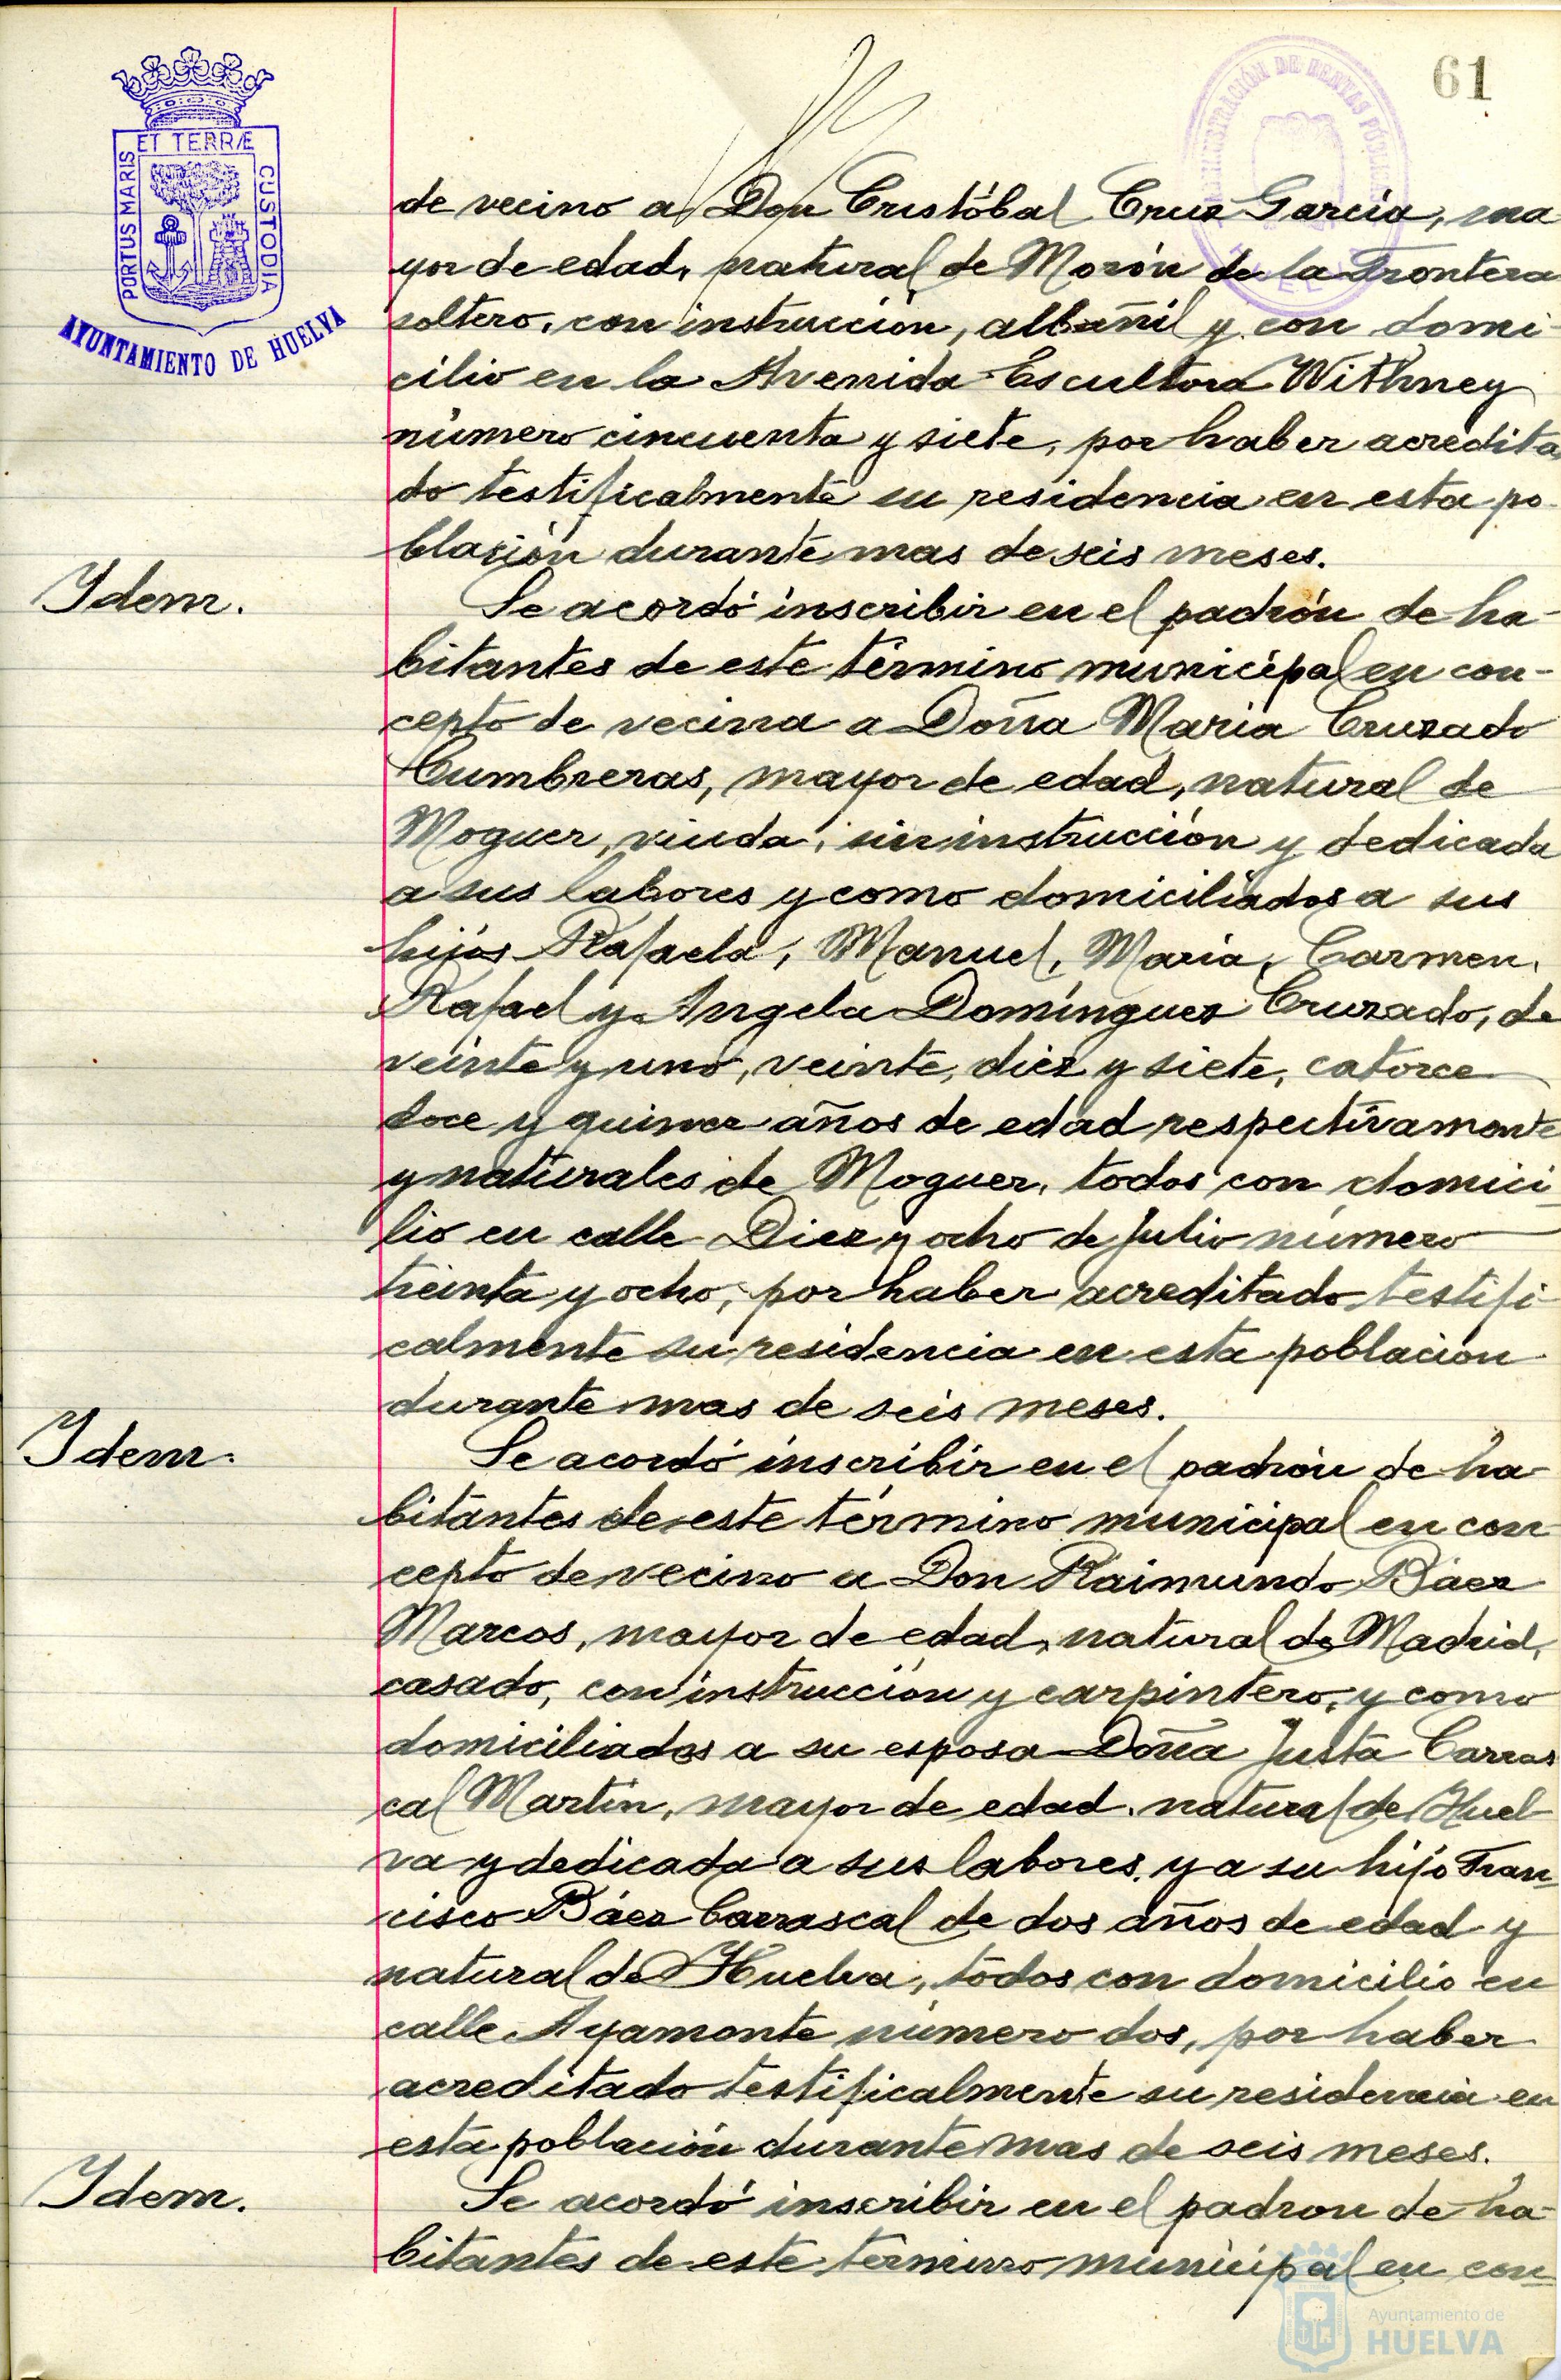 61
PORTUS MARIS ET TERRÆ CUSTODIA
AYUNTAMIENTO DE HUELVA
ADMINISTRACIÓN DE RENTAS PÚBLICAS
de vecino a Don Cristóbal Cruz García, ma
yor de edad, natural de Morón de la Frontera
soltero, con instrucción, albañil y con domi-
cilio en la Avenida Escultora Withney
número cincuenta y siete, por haber acredita
do testificalmente su residencia en esta po-
blación durante mas de seis meses.
Idem.
Se acordó inscribir en el padrón de ha-
bitantes de este término municipal en con-
cepto de vecina a Doña Maria Cruzado
Cumbreras, mayor de edad, natural de
Moguer, viuda, sin instrucción y dedicada
a sus labores y como domiciliados a sus
hijos Rafaela, Manuel, Maria, Carmen,
Rafael y Angela Domínguez Cruzado, de
veinte y uno, veinte, diez y siete, catorce
doce y quince años de edad respectivamente
y naturales de Moguer, todos con domici-
lio en calle Diez y ocho de Julio número
treinta y ocho, por haber acreditado testifi-
calmente su residencia en esta población
durante mas de seis meses.
Idem.
Se acordó inscribir en el padrón de ha-
bitantes de este término municipal en con-
cepto de vecino a Don Raimundo Báez
Marcos, mayor de edad, natural de Madrid,
casado, con instrucción y carpintero, y como
domiciliados a su esposa Doña Justa Carras
cal Martín, mayor de edad, natural de Huel-
va y dedicada a sus labores, y a su hijo Fran
cisco Báez Carrascal de dos años de edad y
natural de Huelva, todos con domicilio en
calle Ayamonte número dos, por haber
acreditado testificalmente su residencia en
esta población durante mas de seis meses.
Idem.
Se acordó inscribir en el padron de ha-
bitantes de este término municipal en con-
Ayuntamiento de
HUELVA